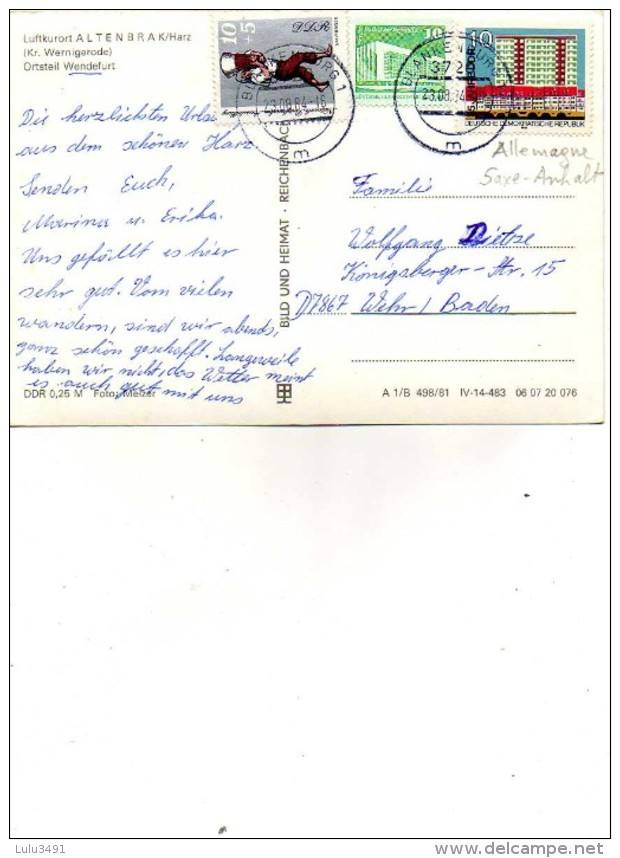 Luftkurort ALTENBRAK/Harz
(Kr. Wernigerode)
Ortsteil Wendefurt
Die herzlichsten
aus dem schönen Harz
Senden Euch,
Marina u. Erika.
Uns gefällt es hier
sehr gut. Vom vielen
wandern, sind wir abends,
ganz schön geschafft. Langeweile
haben wir nicht, das Wetter meint
es auch gut mit uns
DDR 0,25 M Foto: Melzer
BILD UND HEIMAT · REICHENBACH
10+5
DDR
10
10
DEUTSCHE DEMOKRATISCHE REPUBLIK
BLANKENBURG 1
23.08.84-16
BLANKENBURG
372
23.08.84
Allemagne
Saxe-Anhalt
Familie
Wolfgang Dietze
Königsberger-Str. 15
D7867 Wehr / Baden
A 1/B 498/81 IV-14-483 06 07 20 076
Lulu3491
www.delcampe.net